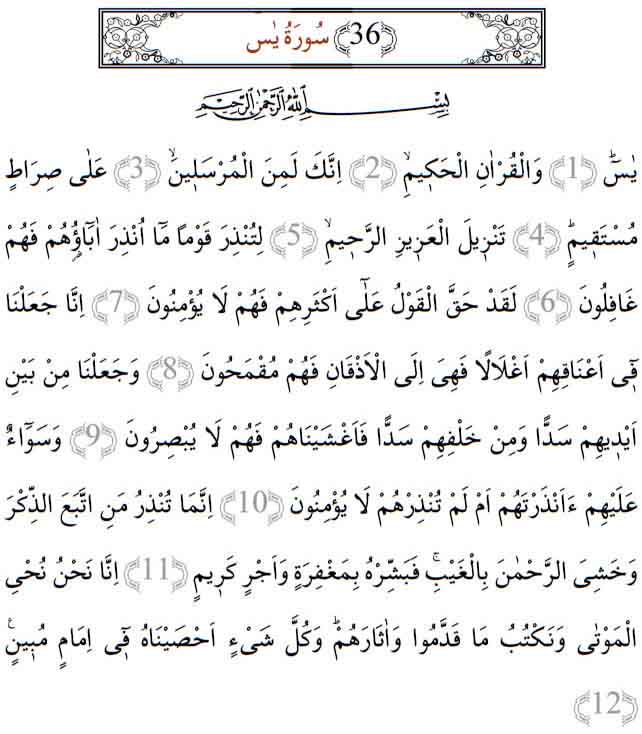 (36) سُورَةُ يٰس
بِسْمِ اللّٰهِ الرَّحْمٰنِ الرَّحِيمِ
يٰسٓ ۜ (1) وَالْقُرْاٰنِ الْحَكِيمِۙ (2) اِنَّكَ لَمِنَ الْمُرْسَلِينَۙ (3) عَلٰى صِرَاطٍ
مُسْتَقِيمٍۜ (4) تَنْزِيلَ الْعَزِيزِ الرَّحِيمِۙ (5) لِتُنْذِرَ قَوْمًا مَٓا اُنْذِرَ اٰبَٓاؤُ۬هُمْ فَهُمْ
غَافِلُونَ (6) لَقَدْ حَقَّ الْقَوْلُ عَلٰٓى اَكْثَرِهِمْ فَهُمْ لَا يُؤْمِنُونَ (7) اِنَّا جَعَلْنَا
فِٓى اَعْنَاقِهِمْ اَغْلَالًا فَهِىَ اِلَى الْاَذْقَانِ فَهُمْ مُقْمَحُونَ (8) وَجَعَلْنَا مِنْ بَيْنِ
اَيْدِيهِمْ سَدًّا وَمِنْ خَلْفِهِمْ سَدًّا فَاَغْشَيْنَاهُمْ فَهُمْ لَا يُبْصِرُونَ (9) وَسَوَٓاءٌ
عَلَيْهِمْ ءَاَنْذَرْتَهُمْ اَمْ لَمْ تُنْذِرْهُمْ لَا يُؤْمِنُونَ (10) اِنَّمَا تُنْذِرُ مَنِ اتَّبَعَ الذِّكْرَ
وَخَشِىَ الرَّحْمٰنَ بِالْغَيْبِۚ فَبَشِّرْهُ بِمَغْفِرَةٍ وَاَجْرٍ كَرِيمٍ (11) اِنَّا نَحْنُ نُحْىِ
الْمَوْتٰى وَنَكْتُبُ مَا قَدَّمُوا وَاٰثَارَهُمْۜ وَكُلَّ شَىْءٍ اَحْصَيْنَاهُ فِٓى اِمَامٍ مُبِينٍ۟
(12)